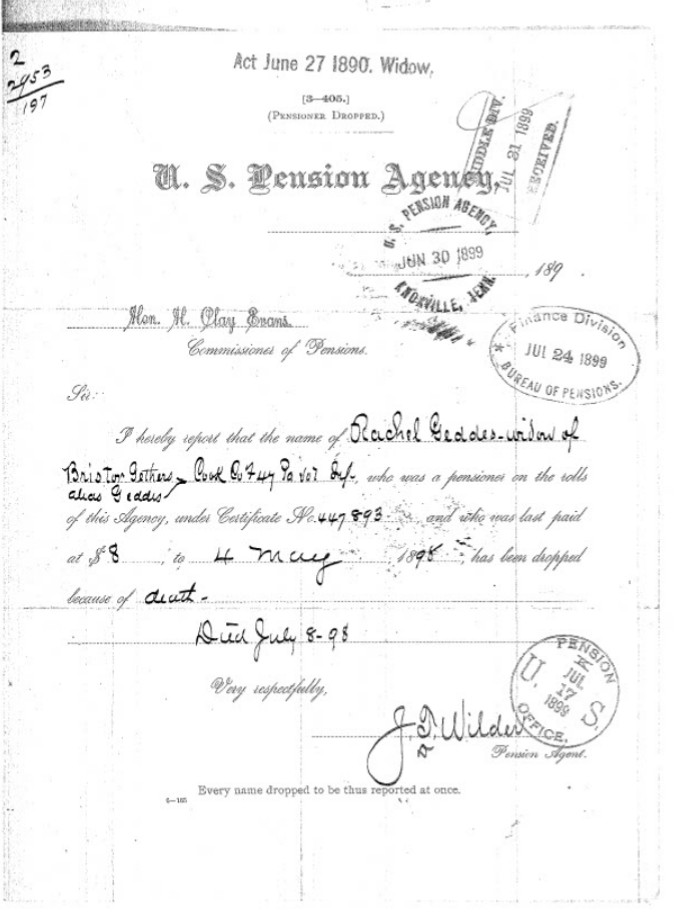 2
2953
197
Act June 27 1890. Widow.
[3—405.]
(PENSIONER DROPPED.)
MIDDLE DIV.
JUL 21 1899
RECEIVED.
U. S. Pension Agency,
U. S. PENSION AGENCY,
JUN 30 1899
KNOXVILLE, TENN.
, 189
Hon. H. Clay Evans.
Commissioner of Pensions.
Finance Division
JUL 24 1899
BUREAU OF PENSIONS.
Sir:
I hereby report that the name of Rachel Geddes-widow of
Bristor Gethers Cook Co F 47 Pa Vol Inf- who was a pensioner on the rolls
alias Geddis
of this Agency, under Certificate No. 447893 and who was last paid
at $8, to 4 May, 1898, has been dropped
because of death-
Died July 8-98
Very respectfully,
U. S. PENSION OFFICE.
K
JUL
17
1899
J. T. Wilder
Pension Agent.
Every name dropped to be thus reported at once.
6—165